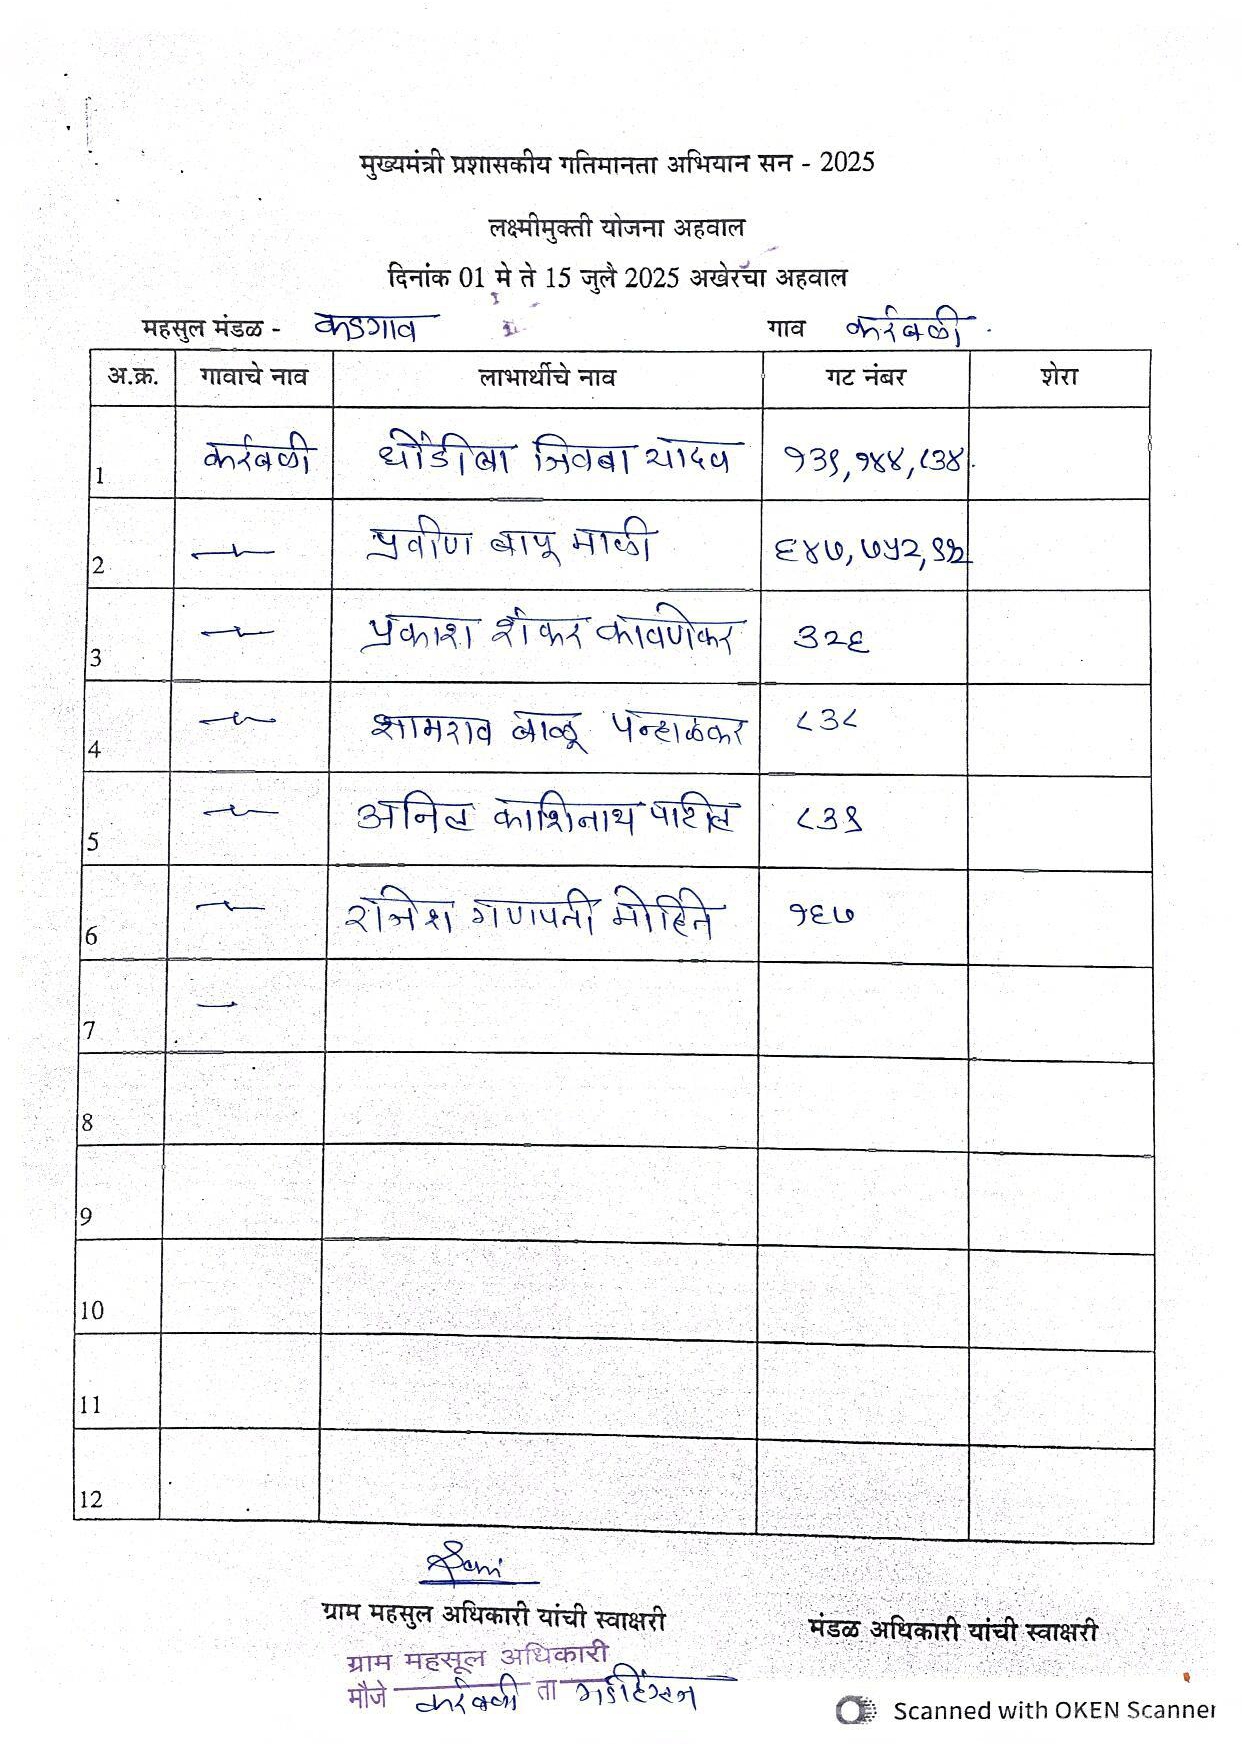 मुख्यमंत्री प्रशासकीय गतिमानता अभियान सन - 2025
लक्ष्मीमुक्ती योजना अहवाल
दिनांक 01 मे ते 15 जुलै 2025 अखेरचा अहवाल
महसुल मंडळ - कडगाव गाव कर्रबळी
अ.क्र. गावाचे नाव लाभार्थीचे नाव गट नंबर शेरा
1 कर्रबळी धोंडीबा जिवबा यादव १३९, १४४, ८३४
2 प्रवीण बापू माळी ६४७, ७५२,
3 प्रकाश शंकर कावणेकर ३२६
4 शामराव बाळू पन्हाळकर ८३८
5 अनिल काशिनाथ पाटील ८३९
6 राजेश गणपती मोहिते १६७
7
8
9
10
11
12
ग्राम महसुल अधिकारी यांची स्वाक्षरी मंडळ अधिकारी यांची स्वाक्षरी
ग्राम महसूल अधिकारी
मौजे कर्रबळी ता गडहिंग्लज
Scanned with OKEN Scanner